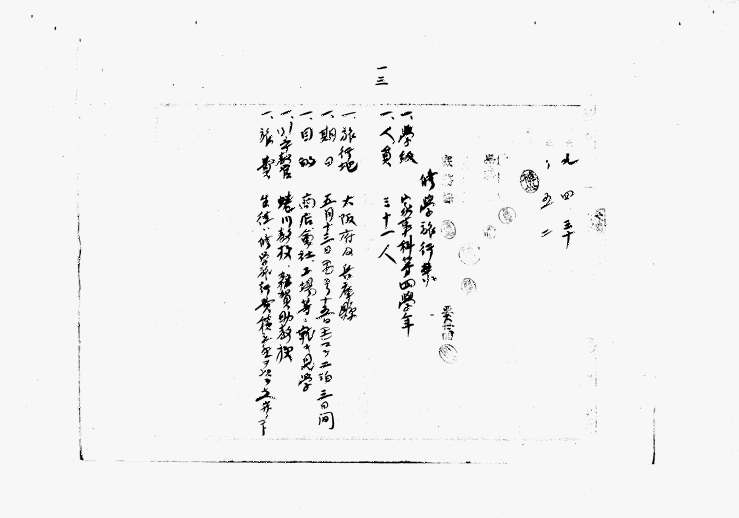 一三
九 四 三十
、 五 二
修学旅行案
一、學級 家事科第四學年
一、人員 三十一人
一、旅行地 大阪府及兵庫縣
一、期日 五月十三日ヨリ十五日マデ二泊三日間
一、目的 商店、會社、工場等ニ就キ見学
一、引率教官 蜷川教授、雜賀助教授
一、旅費 生徒ハ修学旅行費積立金ヨリ